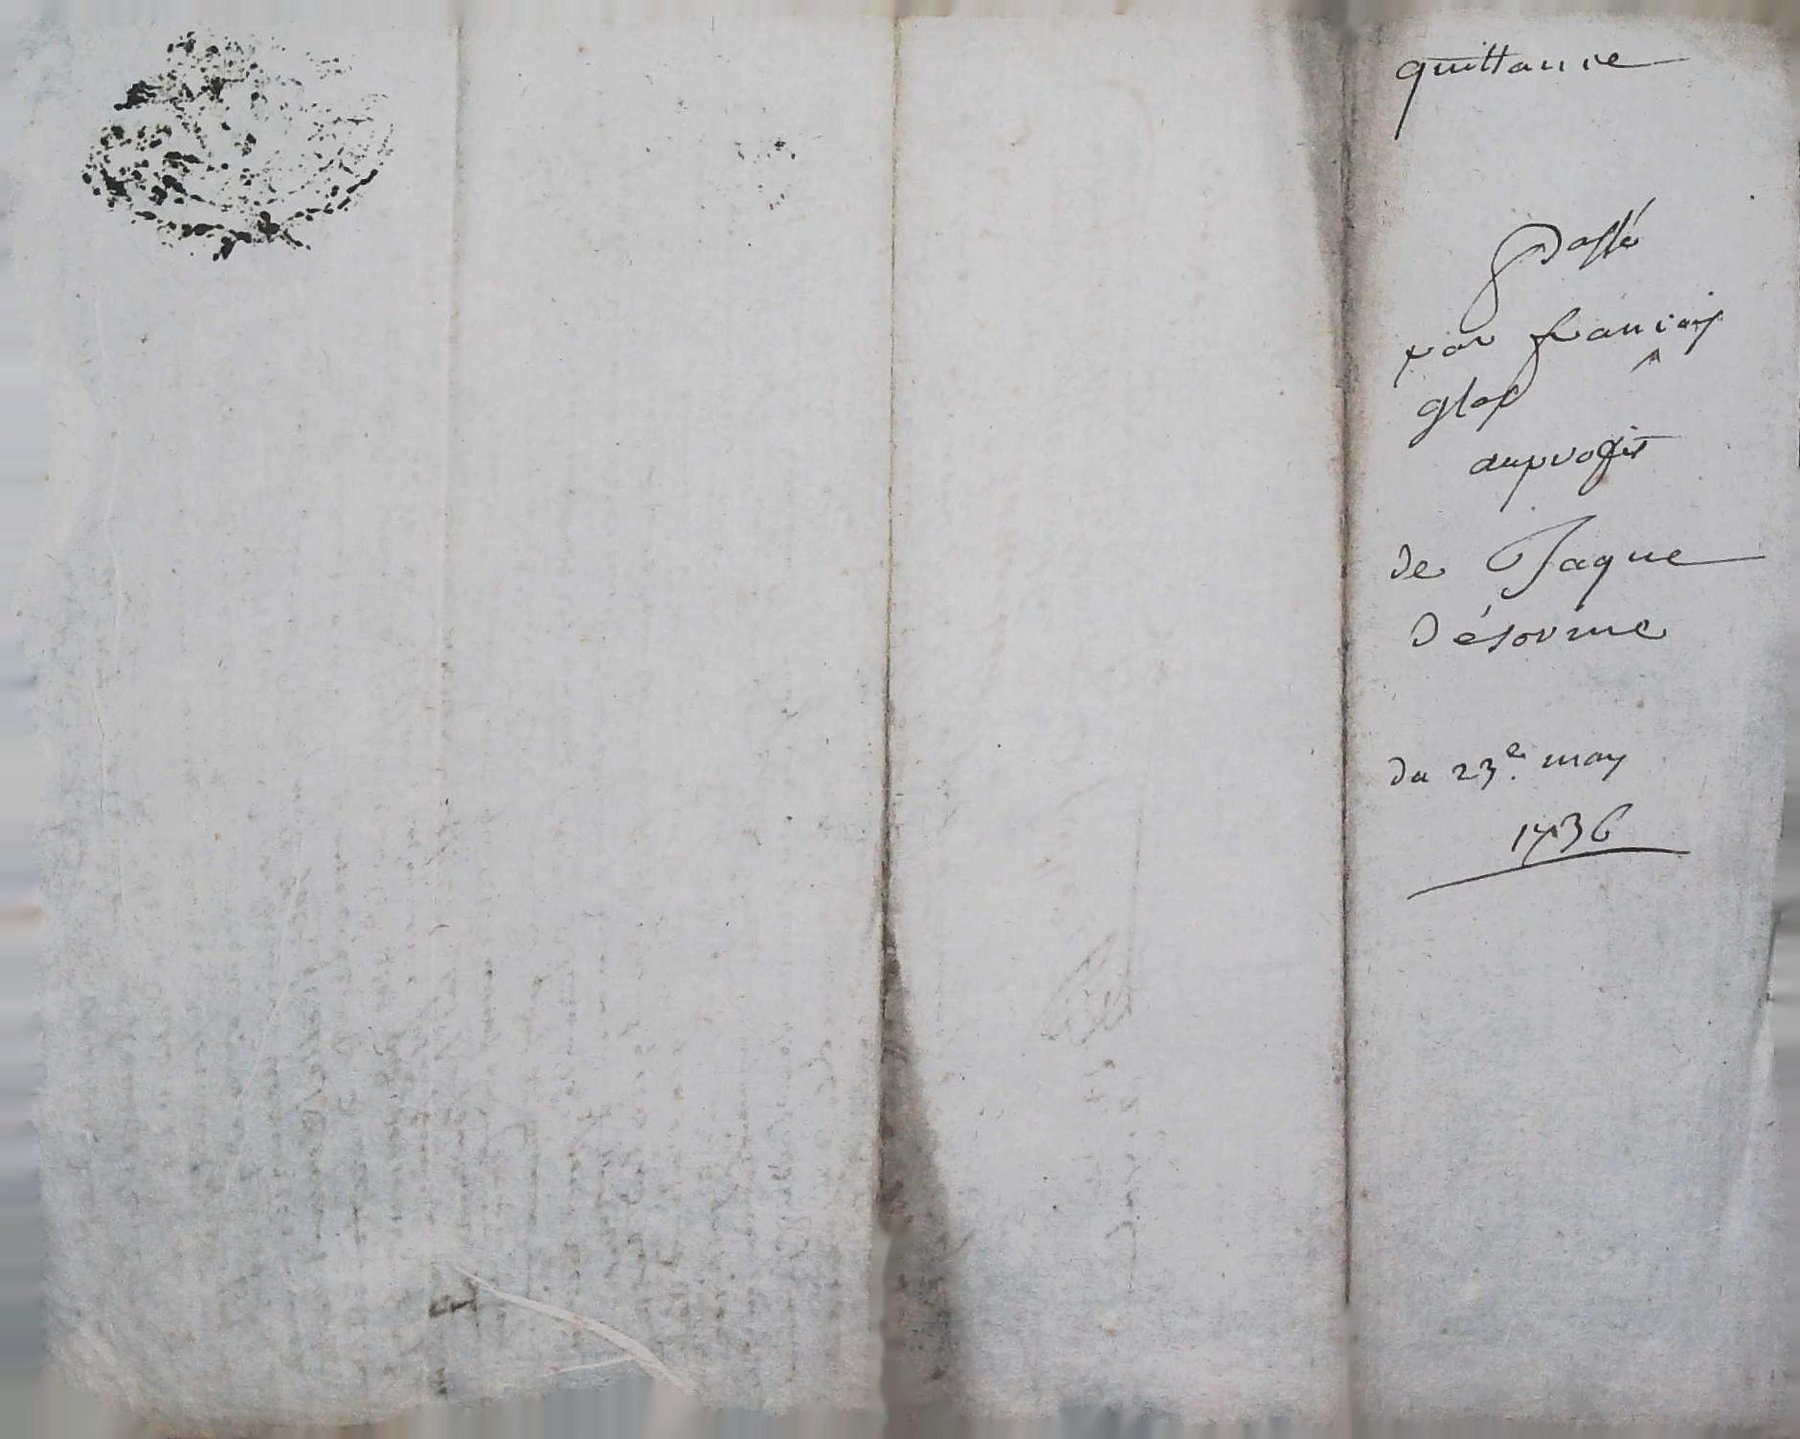 quittance
Passé
par francois
glas
auprofit
de Jaque
Désorme
du 23e. may
1736